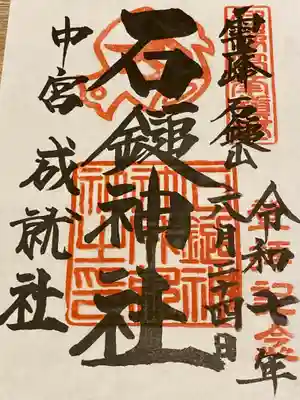 霊峰 石鎚山
令和七年
六月二十四日
石鎚神社
中宮 成就社